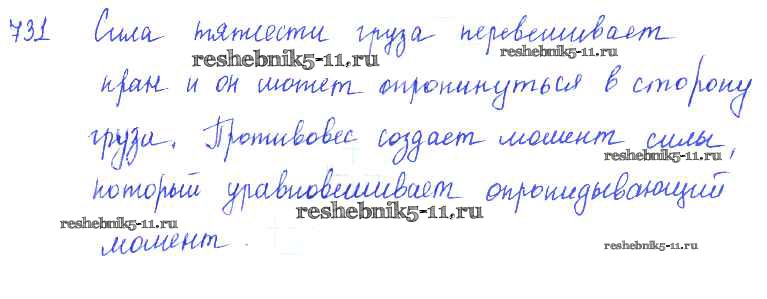 731 Сила тяжести груза перевешивает
reshebnik5-11.ru reshebnik5-11.ru
кран и он может опрокинуться в сторону
груза. Противовес создает момент силы,
reshebnik5-11.ru
который уравновешивает опрокидывающий
reshebnik5-11.ru reshebnik5-11.ru
момент.
reshebnik5-11.ru